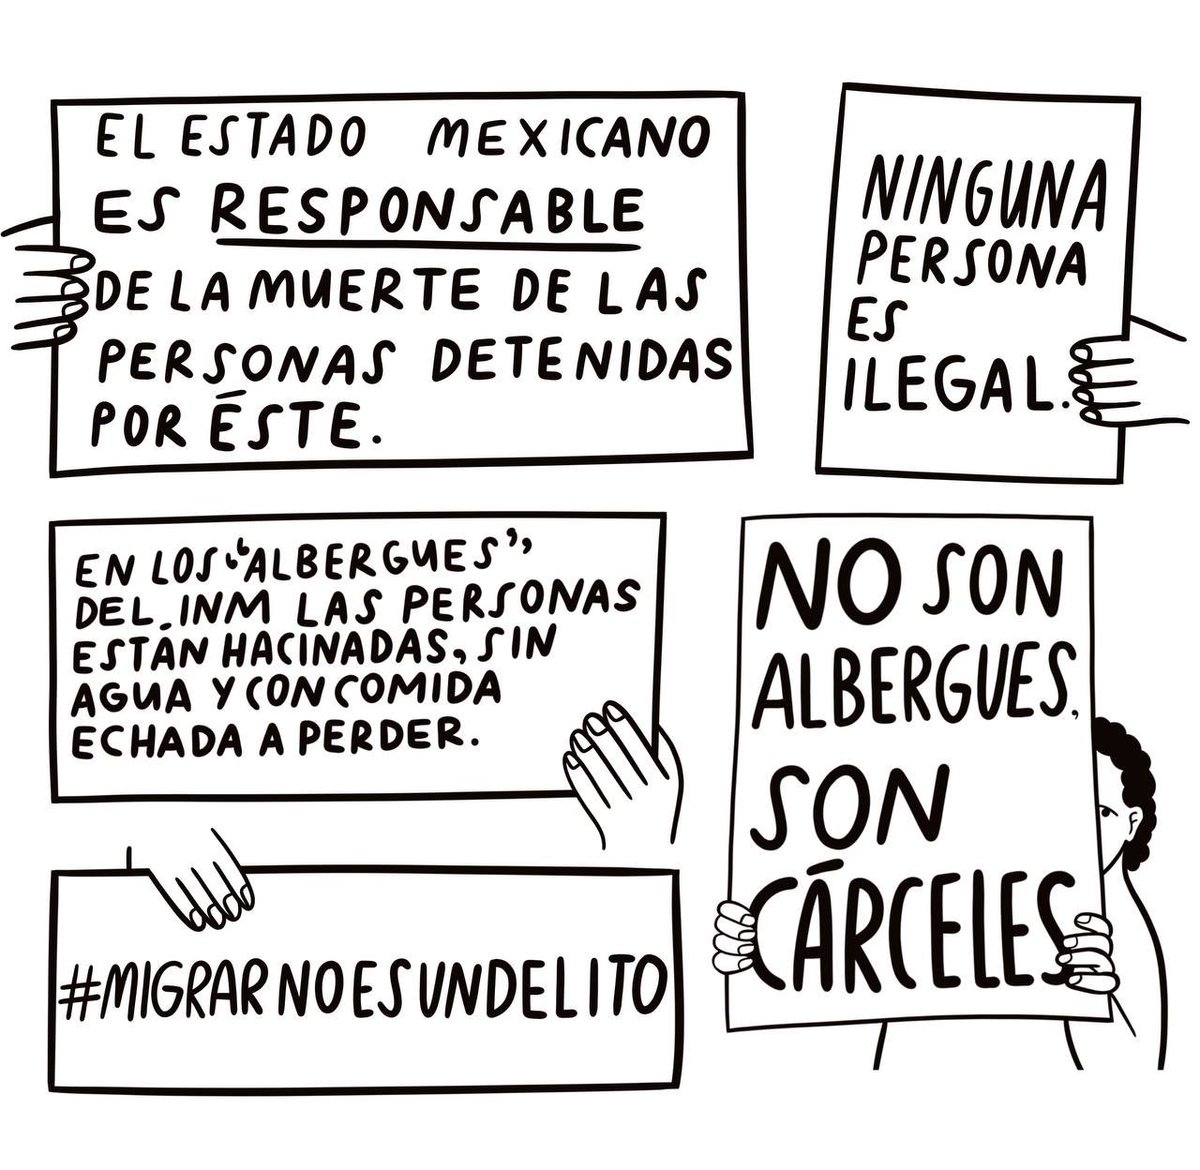 EL ESTADO MEXICANO
ES RESPONSABLE
DE LA MUERTE DE LAS
PERSONAS DETENIDAS
POR ÉSTE.
NINGUNA
PERSONA
ES
ILEGAL.
EN LOS “ALBERGUES”
DEL INM LAS PERSONAS
ESTÁN HACINADAS, SIN
AGUA Y CON COMIDA
ECHADA A PERDER.
NO SON
ALBERGUES,
SON
CÁRCELES
#MIGRARNOESUNDELITO